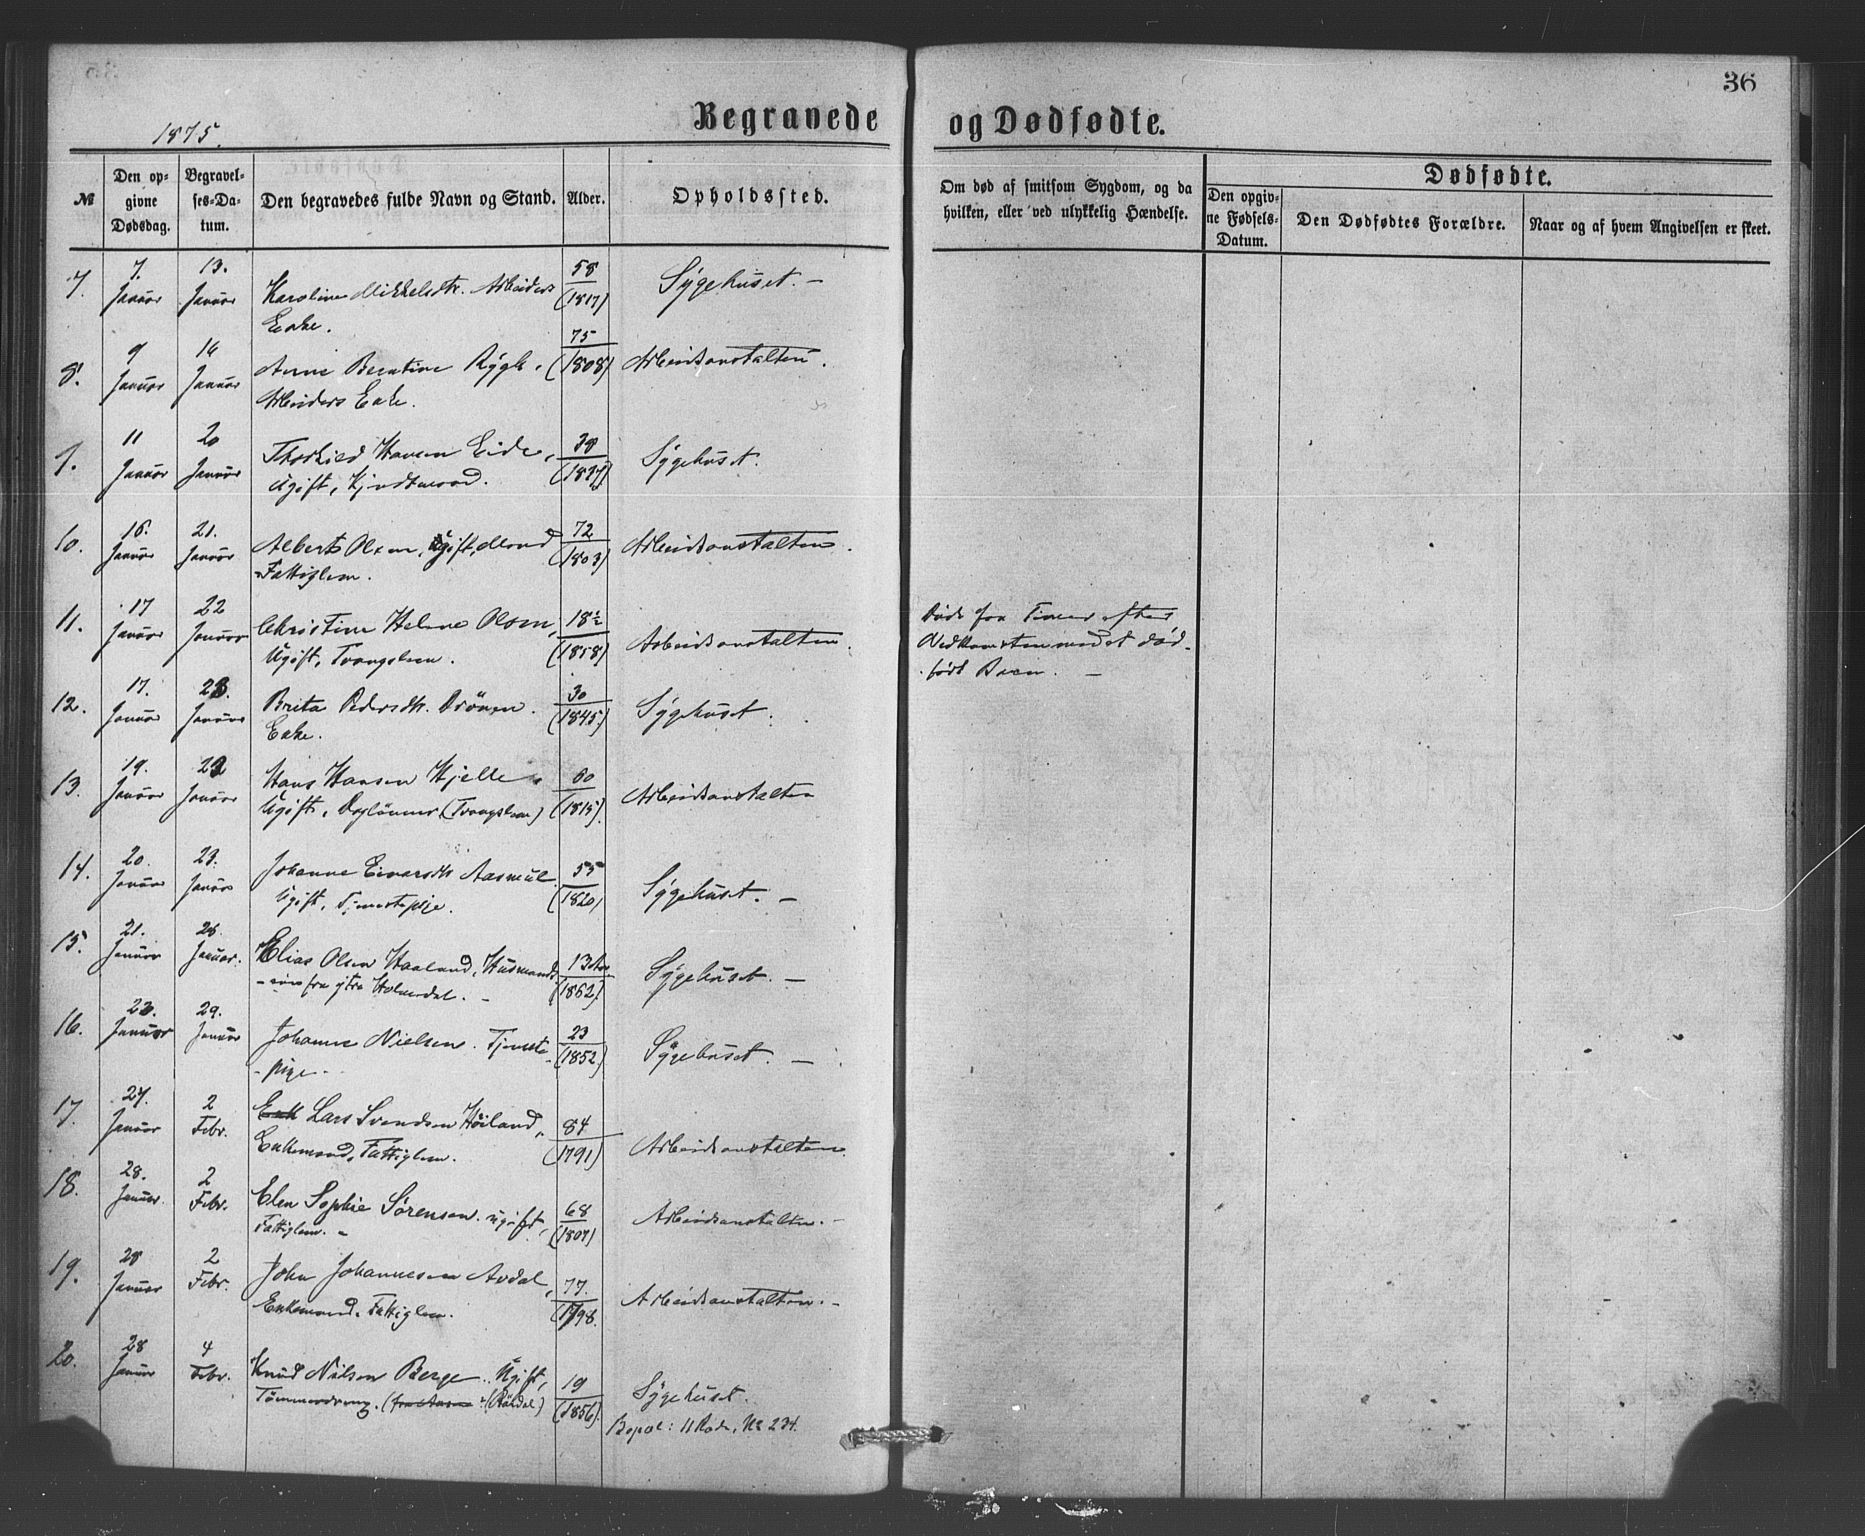 36
Begravede og Dødfødte.
1875.
№
Den opgivne Dødsdag.
Begravelses-Datum.
Den begravedes fulde Navn og Stand.
Alder.
Opholdssted.
Om død af smitsom Sygdom, og da hvilken, eller ved ulykkelig Hændelse.
Dødfødte.
Den opgivne Fødsels-Datum.
Den Dødfødtes Forældre.
Naar og af hvem Angivelsen er skeet.
7. 7. Januar 13. Januar Karoline Mikkelsdtr. Arbeiders 58 (1817) Sygehuset. –
Enke.
8. 9 Januar 16 Januar Anne Berntine 75 (1808) Arbeidsanstalten.
Arbeiders Enke.
9. 11 Januar 20 Januar Thorkild Hansen Eide, 38 (1837) Sygehuset.
Ugift,
10. 16. Januar 21. Januar Albert Olsen, Ugift, 72 (1803) Arbeidsanstalten.
Fattiglem.
11. 17 Januar 22 Januar Christine Helene Olsen, 18½ (1858) Arbeidsanstalten. Døde faa Timer efter
Ugift, Tvangslem. Nedkomsten med et død-
født Barn. –
12. 17. Januar 23. Januar Brita Pedersdtr. Drönen. 30 (1845) Sygehuset.
Enke.
13. 19. Januar 22 Januar Hans Hansen Hjelle, 60 (1815). Arbeidsanstalten
Ugift, Daglönner (Tvangslem)
14. 20. Januar 23. Januar Johanne Einarsdtr. Aasmul. 55 (1820) Sygehuset. –
Ugift, Tjenestepige.
15. 21. Januar 26. Januar. Elias Olsen Haaland, Husmands- 13 Aar (1862). Sygehuset. –
søn fra ytre Holmedal. –
16. 23. Januar 29. Januar Johanne Nielsen. Tjeneste- 23 (1852) Sygehuset. –
pige. –
17. 27. Januar 2 Febr. Enk Lars Svendsen Höiland, 84 (1791) Arbeidsanstalten.
Enkemand, Fattiglem.
18. 28. Januar. 2 Febr. Elen Sophie Sørensen. ugift, 68 (1807) Arbeidsanstalten. –
Fattiglem. –
19. 28 Januar 2 Febr. John Johannesen Ardal, 77. (1798. Arbeidsanstalten. –
Enkemand. Fattiglem.
20. 28 Januar 4 Febr. Knud Nilsen Berge. Ugift, 19 (1856). Sygehuset.
Tømmerdreng. (Röldal)
Bopæl: 11 Rode, No 234.